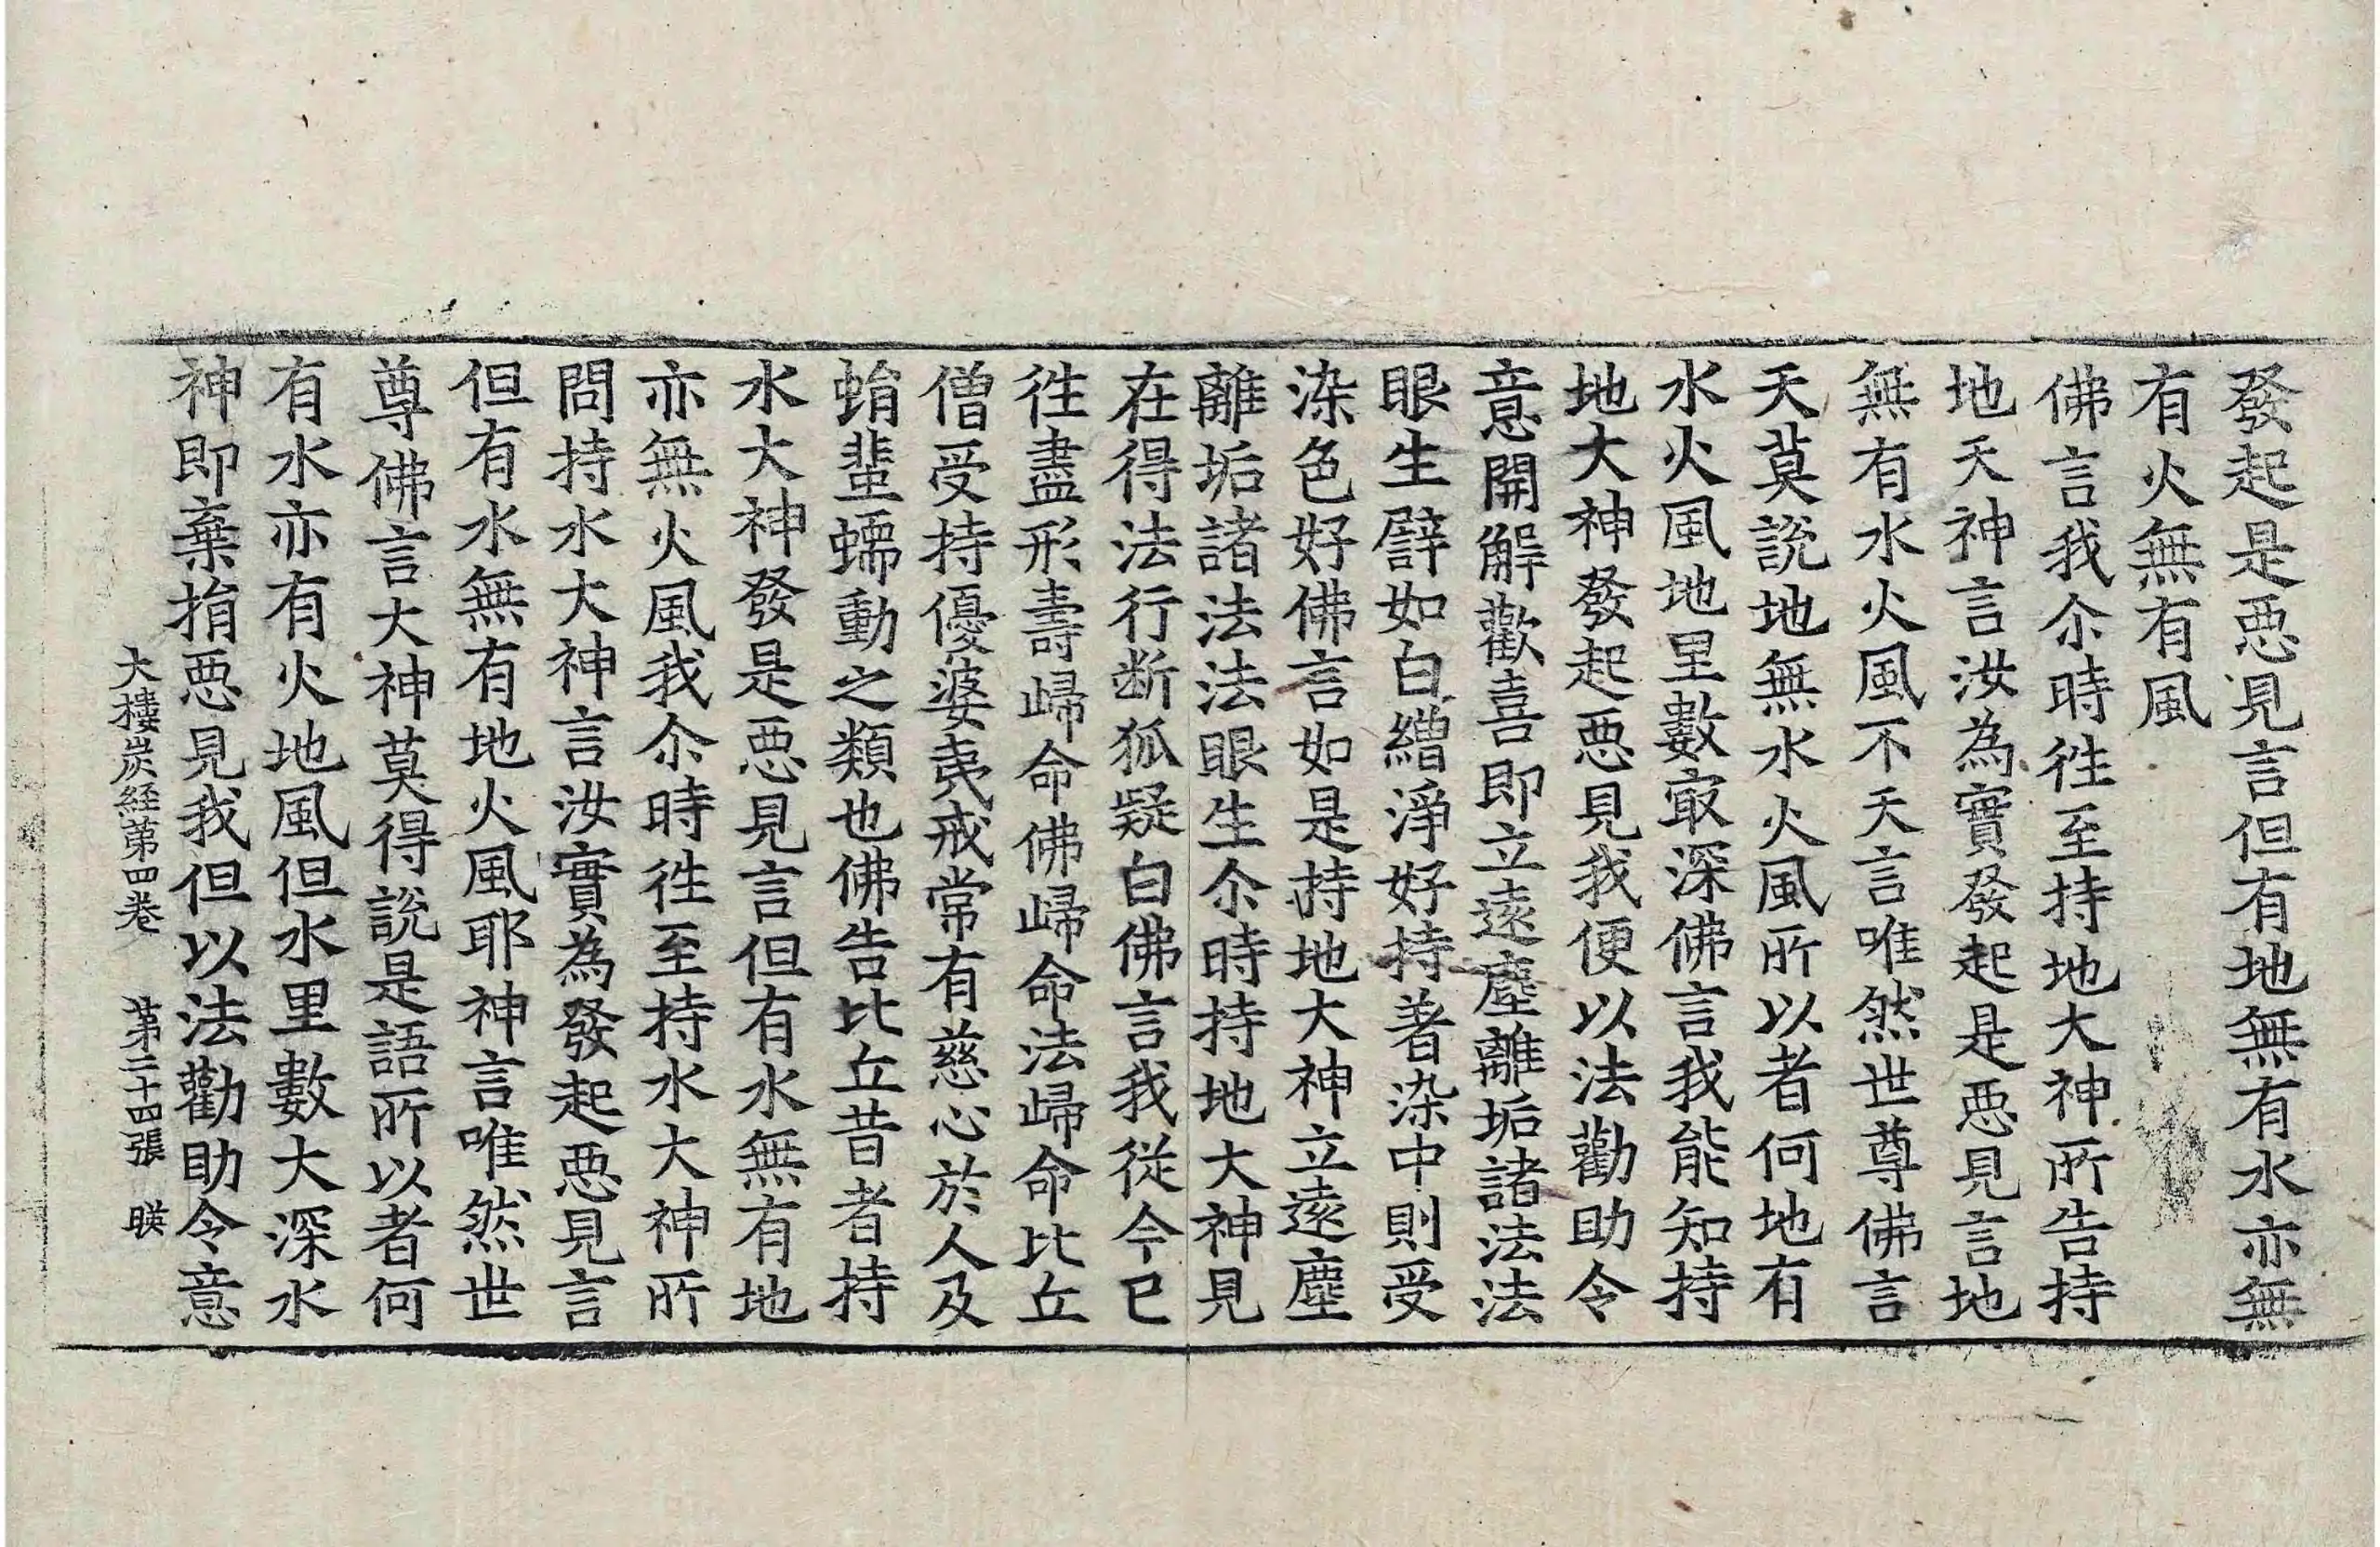 發起是惡見言但有地無有水亦無
有火無有風
佛言我尒時徃至持地大神所告持
地天神言汝為實發起是惡見言地
無有水火風不天言唯然世尊佛言
天莫說地無水火風所以者何地有
水火風地里數㝡深佛言我能知持
地大神發起惡見我便以法勸助令
意開解歡喜即立遠塵離垢諸法法
眼生譬如白繒淨好持著染中則受
染色好佛言如是持地大神立遠塵
離垢諸法法眼生尒時持地大神見
在得法行断狐疑白佛言我從今已
徃盡形壽歸命佛歸命法歸命比丘
僧受持優婆夷戒常有慈心於人及
蜎蜚蠕動之類也佛告比丘昔者持
水大神發是惡見言但有水無有地
亦無火風我尒時徃至持水大神所
問持水大神言汝實為發起惡見言
但有水無有地火風耶神言唯然世
尊佛言大神莫得說是語所以者何
有水亦有火地風但水里數大深水
神即棄捐惡見我但以法勸助令意
大樓炭経第四卷 第二十四張 暎